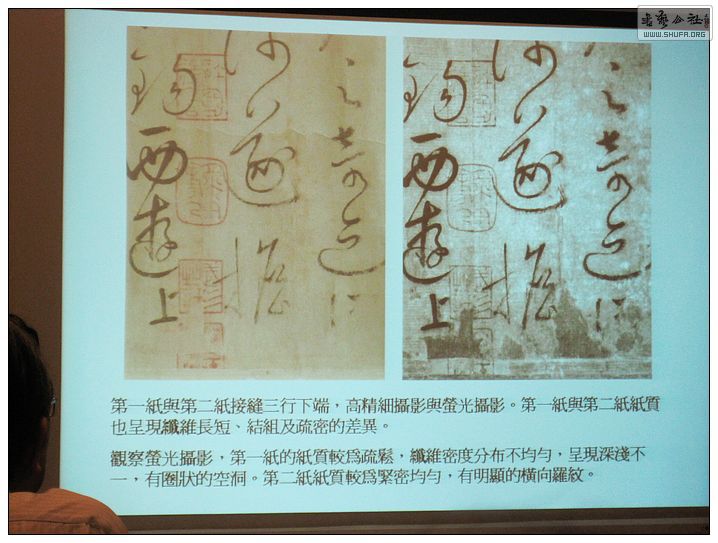 書藝公社
WWW.SHUFA.ORG
之奇迹
遂擔
錫西遊上
之奇迹
遂擔
錫西遊上
第一紙與第二紙接縫三行下端，高精細攝影與螢光攝影。第一紙與第二紙紙質
也呈現纖維長短、結組及疏密的差異。
觀察螢光攝影，第一紙的紙質較為疏鬆，纖維密度分布不均勻，呈現深淺不
一，有圈狀的空洞。第二紙紙質較為緊密均勻，有明顯的橫向羅紋。